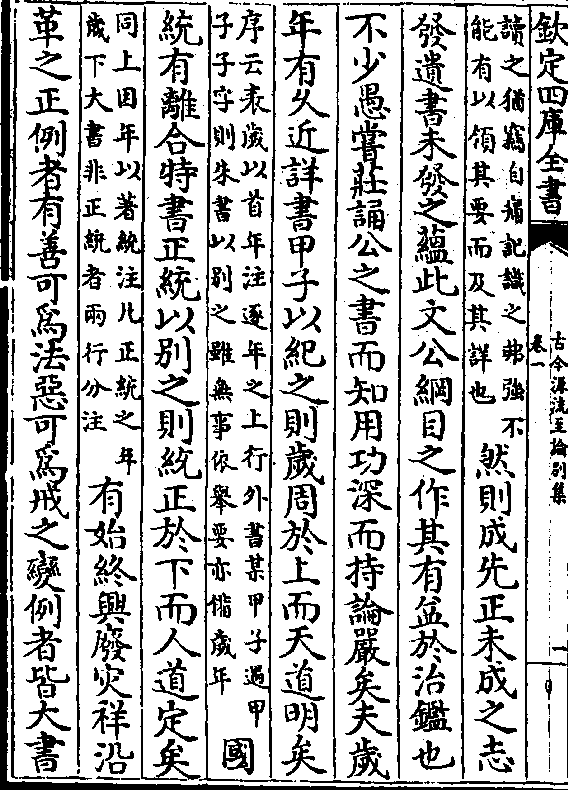 欽定四庫全書
古今源流至論別集
卷一
一
讀之猶竊自病記識之弗強不
能有以領其要而及其詳也
然則成先正未成之志
發遺書未發之蘊此文公綱目之作其有益於治鑑也
不少愚嘗莊誦公之書而知用功深而持論嚴矣夫歲
年有久近詳書甲子以紀之則歲周於上而天道明矣
序云表歲以首年注逐年之上行外書某甲子過甲
子子字則朱書以別之雖無事依舉要亦偹歲年
國
統有離合特書正統以別之則統正於下而人道定矣
同上因年以著統注凡正統之年
歲下大書非正統者兩行分注
有始終興廢灾祥沿
革之正例者有善可為法惡可為戒之變例者皆大書